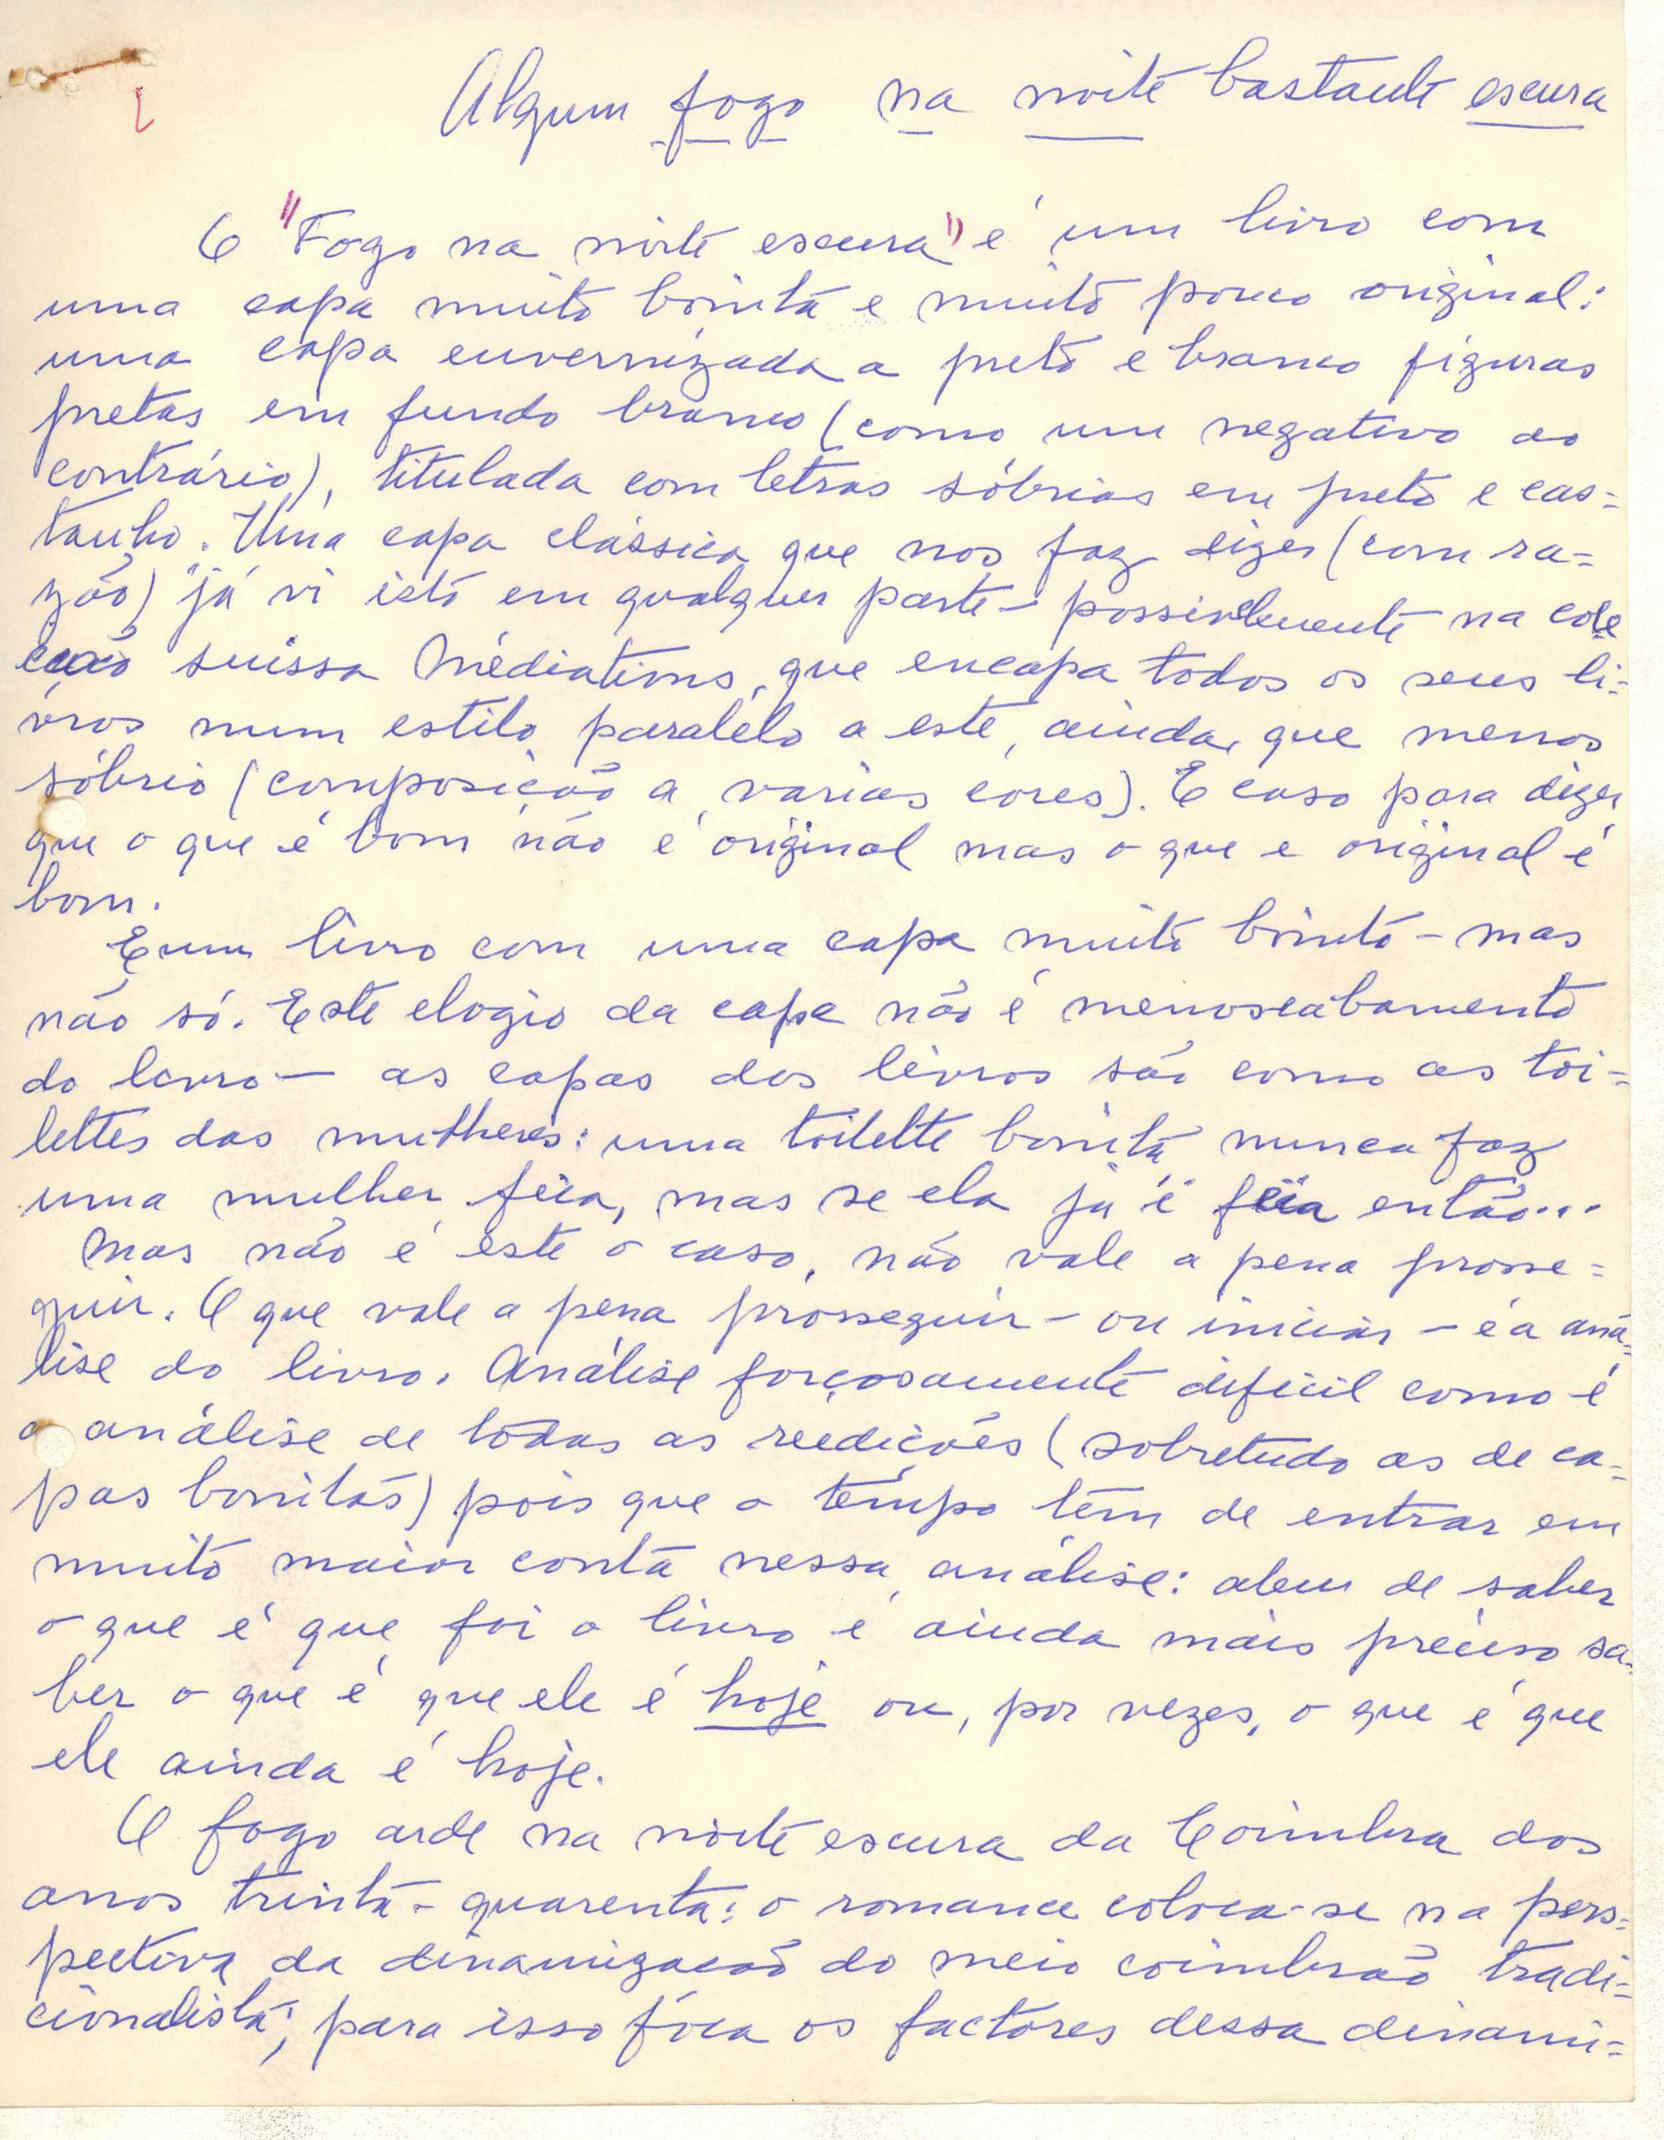 Algum fogo na noite bastante escura
O "Fogo na noite escura" é um livro com
uma capa muito bonita e muito pouco original:
uma capa envernizada a preto e branco figuras
pretas em fundo branco (como um negativo ao
contrário), titulada com letras sóbrias em preto e cas=
tanho. Uma capa clássica que nos faz dizer (com ra=
zão) "já vi isto em qualquer parte – possivelmente na cole
cção suissa Médiations, que encapa todos os seus li=
vros num estilo paralelo a este, ainda que menos
sóbrio (composição a várias cores). É caso para dizer
que o que é bom não é original mas o que e original é
bom.
É um livro com uma capa muito bonita – mas
não só. Este elogio da capa não é menoscabamento
do livro – as capas dos livros são como as toi=
lettes das mulheres: uma toilette bonita nunca faz
uma mulher feia, mas se ela já é feia então...
Mas não é este o caso, não vale a pena prosse=
guir. O que vale a pena prosseguir – ou iniciar – é a aná=
lise do livro. Análise forçosamente difícil como é
a análise de todas as reedições (sobretudo as de ca=
pas bonitas) pois que o tempo tem de entrar em
muito maior conta nessa análise: alem de saber
o que é que foi o livro é ainda mais preciso sa=
ber o que é que ele é hoje ou, por vezes, o que é que
ele ainda é hoje.
O fogo arde na noite escura da Coimbra dos
anos trinta-quarenta: o romance coloca-se na pers=
pectiva da dinamização do meio coimbrão tradi=
cionalista; para isso foca os factores dessa dinami=